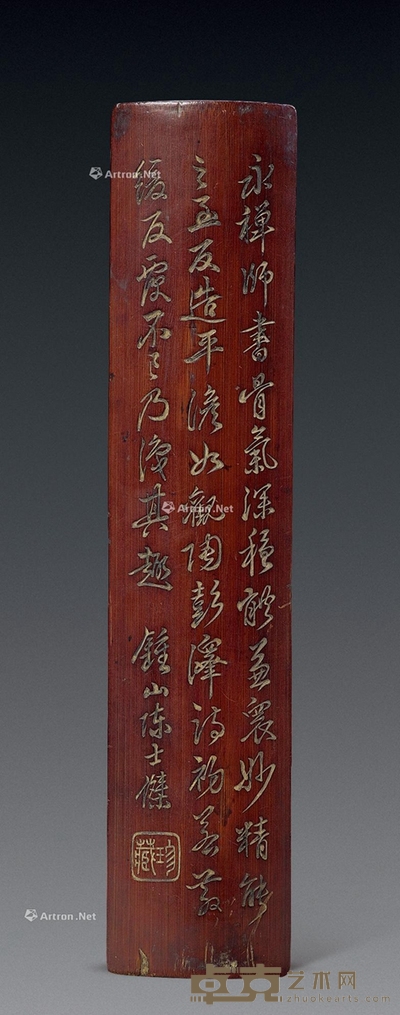 永禪師書骨氣深穩體兼眾妙精能
之至反造平澹如觀陶彭澤詩初若散
緩反覆不已乃識其趣 鍾山陳士傑
珍藏
Artron.Net
Artron.Net
Artron.Net
卓克艺术网
zhuokearts.com